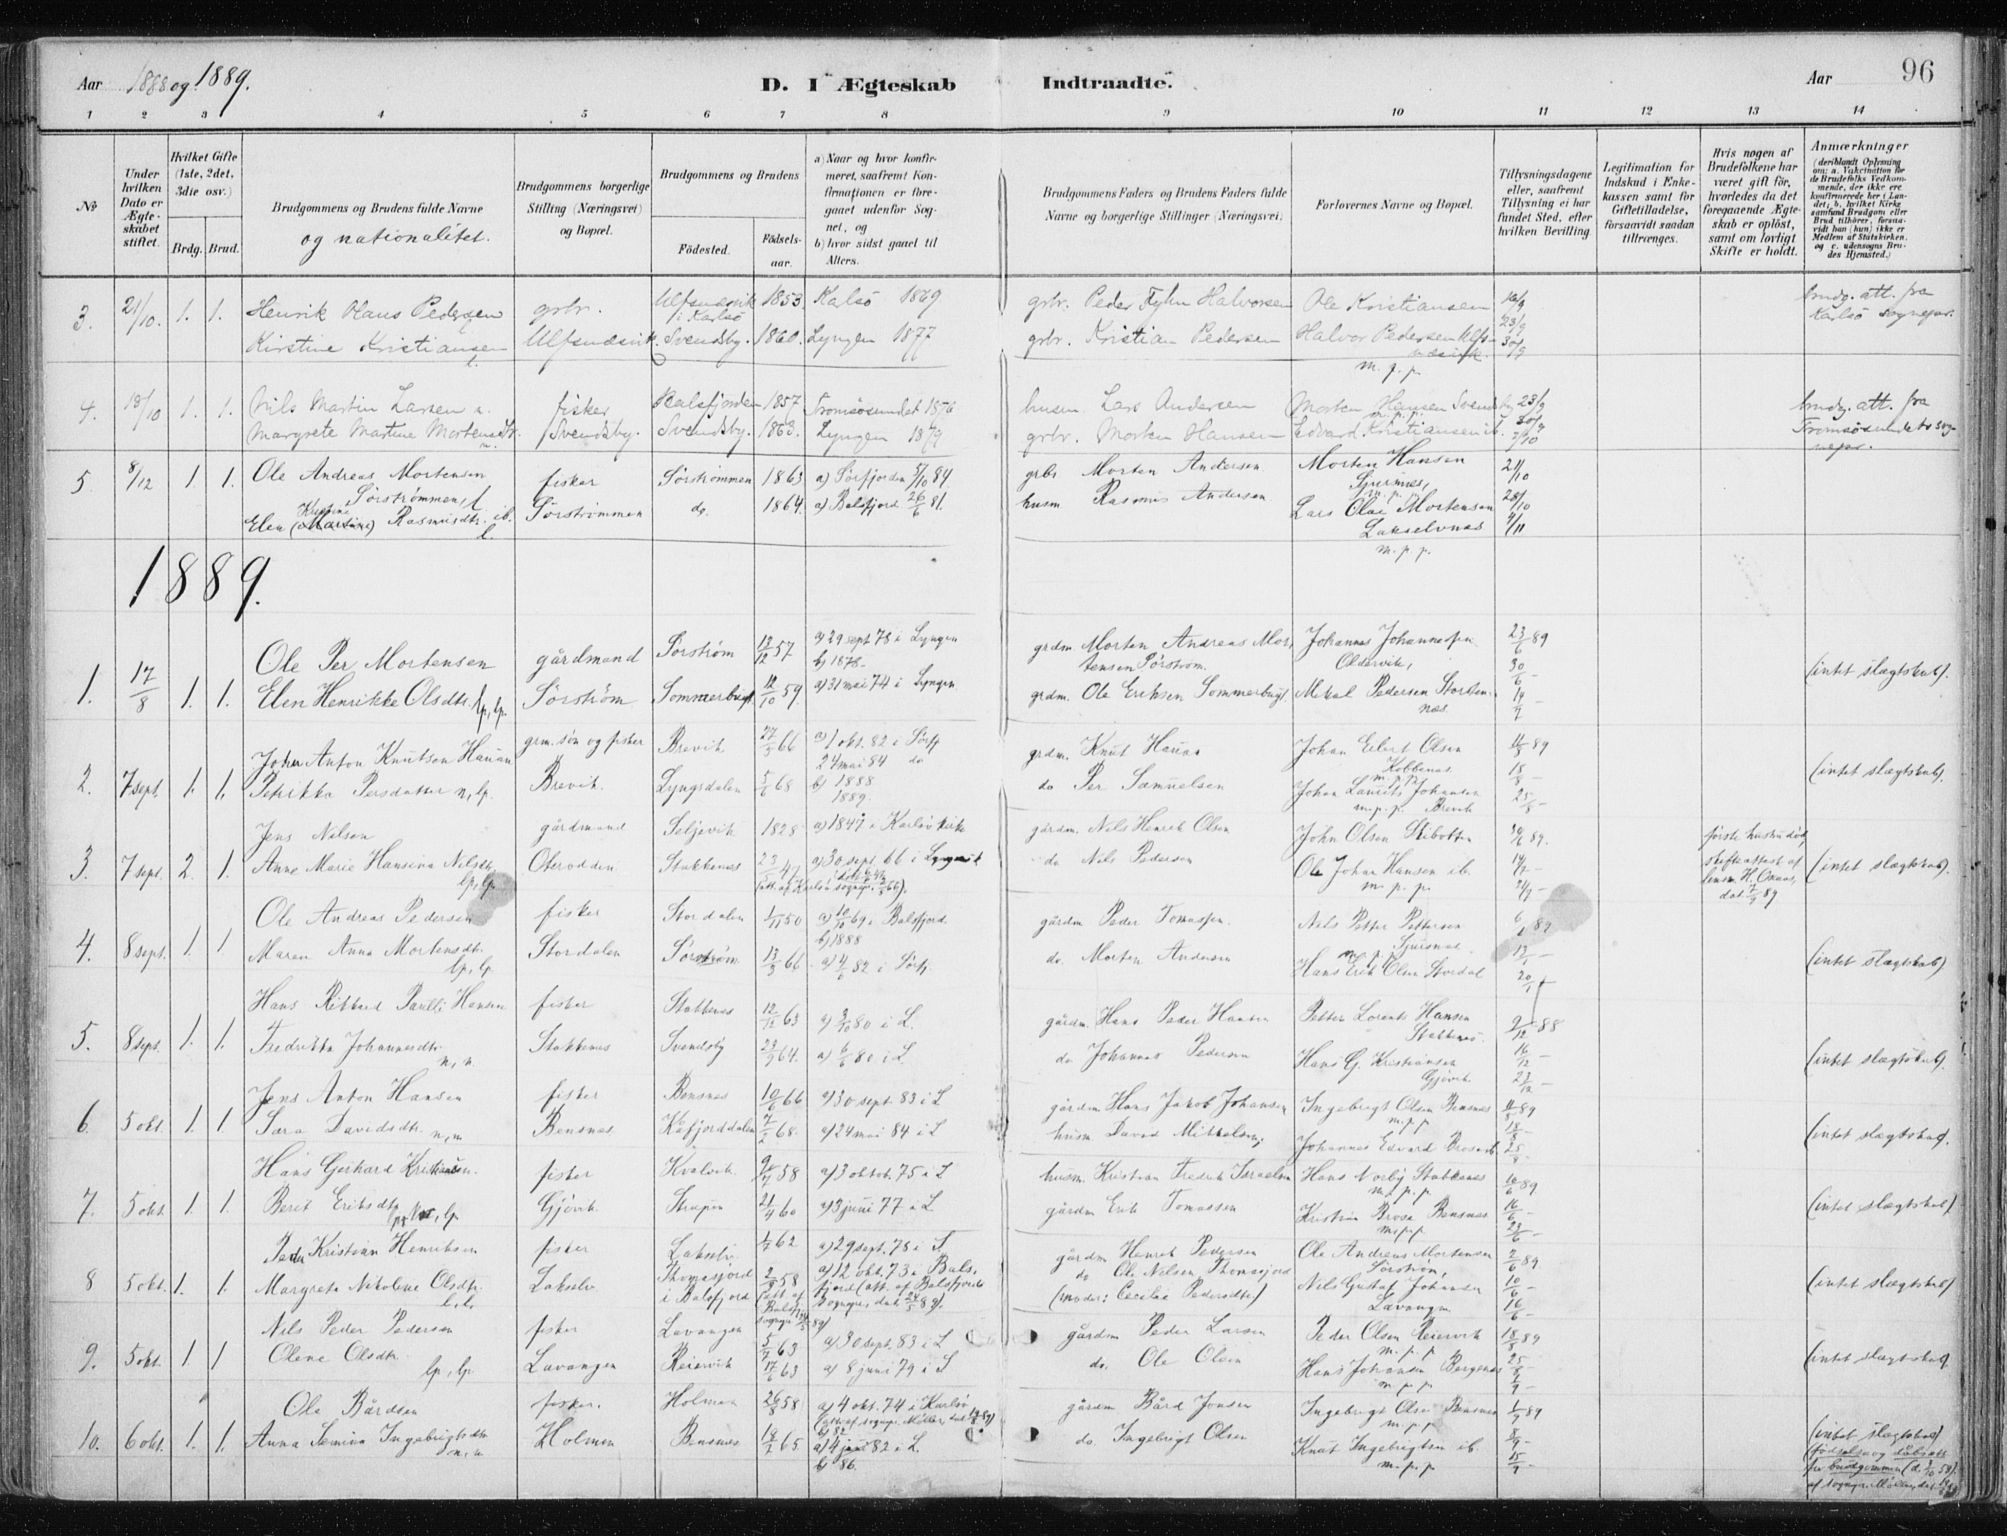 Aar 1888 og 1889.
D. I Ægteskab Indtraadte.
Aar
96
1 2 3 4 5 6 7 8 9 10 11 12 13 14
No
Under hvilken Dato er Ægteskabet stiftet.
Hvilket Gifte (1ste, 2det, 3die osv.)
Brdg. Brud.
Brudgommens og Brudens fulde Navne
og nationalitet.
Brudgommens borgerlige Stilling (Næringsvei) og Bopæl.
Brudgommens og Brudens
Fødested. Fødselsaar.
a) Naar og hvor konfirmeret, saafremt Konfirmationen er foregaaet udenfor Sognet, og
b) hvor sidst gaaet til Alters.
Brudgommens Faders og Brudens Faders fulde Navne og borgerlige Stillinger (Næringsvei).
Forlovernes Navne og Bopæl.
Tillysningsdagene eller, saafremt Tillysning ei har fundet Sted, efter hvilken Bevilling.
Legitimation for Indskud i Enkekassen samt for Giftetilladelse, forsaavidt saadan tiltrænges.
Hvis nogen af Brudefolkene har været gift før, hvorledes da det foregaaende Ægteskab er opløst, samt om lovligt Skifte er holdt.
Anmærkninger
(deriblandt Oplysning om: a. Vaccination for de Brudefolks Vedkommende, der ikke ere konfirmerede her i Landet; b. hvilket Kirkesamfund Brudgom eller Brud tilhører, forsaavidt han (hun) ikke er Medlem af Statskirken, og c. udensogns Brudes Hjemsted.)
3. 21/10. 1. 1. Henrik Hans Pedersen grbr. Ulfsnæsvik i Karlsø 1853. Karlsø 1869 grbr. Peder Fylm Halvorsen Ole Kristiansen 16/9 brudg. att. fra Karlsø sognepr.
Kirstine Kristiansen Ulfsnæsvik. Svendsby. 1860. Lyngen 1877 grbr. Kristian Pedersen Halvor Pedersen Ulfsnæsvik. m.p.p. 23/9 30/9
4. 18/10 1. 1. Nils Martin Larsen n. fisker Balsfjorden 1857. Tromsøsundet 1876 husm. Lars Andersen Morten Hansen Svendsby 23/9 brudg. att. fra Tromsøsundets sognepr.
Margrete Martine Mortensdtr. Svendsby. Svendsby. 1863. Lyngen 1879 grbr. Morten Hansen Edvard Kristiansen ib. 30/9 7/10
5 8/12 1 1. Ole Andreas Mortensen Sørstrømmen fisker Sørstrømmen 1863 a) Sørfjorden 5/10 84 grbr Morten Andersen Morten Hansen Sjursnæs, m.p.p. 21/10
Elen (Martine) Kristine Rasmusdtr. ib. l. Sørstrømmen do. 1864. a) Balsfjord 26/6 81. husm. Rasmus Andersen Lars Olai Mortensen Lakselvnæs m.p.p. 28/10 4/11
1889.
1. 17/8 1. 1. Ole Per Mortensen gårdmand Sørstrøm 12/12 57 a) 29 sept 78 i Lyngen b) 1878 grdm. Morten Andreas Mortensen Sørstrøm. Johannes Johannesen Oldervik, 23/6 89 (intet slægtskab).
Elen Henrikke Olsdtr. lp, lp. Sørstrøm Sommerbugt 12/10 59. a) 31 mai 74 i Lyngen grdm. Ole Eriksen Sommerbugt Mikal Pedersen Storstennæs. 30/6 14/7
2. 7 sept. 1. 1. Johan Anton Knutsen Hauan grm. søn og fisker Brevik 27/5 66 a) 1 okt. 82 i Sørf. grdm. Knut Hauan Johan Eilert Olsen Kobbenes m.p.p. 4/8 89 (intet slægtskab).
Petrikka Persdatter n, lp. Brevik. Lyngsdalen 5/6 68 24 mai 84 do b) 1888 1889. do Per Samuelsen Johan Laurits Johansen m.p.p. Brevik 18/8 25/8
3. 7 sept. 2. 1. Jens Nilsen gårdmand Seljevik 1828 a) 1847 i Karlsø kirke gårdm. Nils Henrik Olsen John Olsen Skibotten 30/6 89. første hustru død, skifteattest af lensm. H. Oxaas, dat. 7/9 89 (intet slægtskab).
Anne Marie Hansina Nilsdtr. lp, lp. Oterodden Stakkenes 23/5 47 a) 30 sept. 66 i Lyngen do Nils Pedersen Ole Johan Hansen ib. m.p.p. 14/7 21/7
4. 8 sept. 1. 1 Ole Andreas Pedersen fisker Stordalen 1/11 50 a) 10/10 69 i Balsfjord. b) 1888 gårdm. Peder Tomassen. Nils Petter Pettersen Sjursnæs m.p.p. 6/1 89
Maren Anna Mortensdtr. lp, lp. Stordalen Sørstrøm 13/3 66 a) 4/6 82 i Sørfj. do. Morten Andersen Hans Erik Olsen Stordal 13/1 20/1 (intet slægtskab)
5. 8 sept. 1. 1. Hans Rikkard Paulli Hansen fisker Stakkenes 12/12 63 a) 3/10 80 i L. gårdm. Hans Peder Hansen Petter Lorents Hansen Stakkenes 9/12 88
Fredrikka Johannesdtr. n, n Stakkenes Svendsby 23/9 64. a) 6/6 80 i L. do Johannes Pedersen Hans G. Kristiansen Gjøvik 16/12 23/12 (intet slægtskab).
6. 5 okt. 1. 1. Jens Anton Hansen fisker Bensnes 10/6 66 a) 30 sept. 83 i L gårdm Hans Jakob Johansen Ingebrigt Olsen Bensnes m.p.p 11/8 89
Sara Davidsdtr. n, n Bensnes Kåfjorddalen 7/2 68. a) 24 mai 84 i L husm. David Mikkelsen, Johannes Edvard 18/8 25/8 (intet slægtskab).
7. 5 okt. 1. 1. Hans Gerhard Kristiansen. fisker Kvalvik 9/7 58 a) 3 oktob. 75 i L husm. Kristian Fredrik Israelsen Hans Norby Stakkenes m.p.p. 10/6 89
Berit Eriksdtr. lp. Gjøvik Strupen 21/4 60 a) 3 juni 77 i L gårdm Erik Tomassen Kristian Brose Bensnes m.p.p 16/6 23/6 (intet slægtskab)
8 5 okt. 1. 1. Peder Kristian Henriksen fisker Lakselv 1/7 62 a) 29 sept. 78 i S. gårdm Henrik Pedersen Ole Andreas Mortensen Sørstrøm, 2/6 89.
Margrete Nikoline Olsdtr. l. l. Lakselv Thomasjord i Balsfjord 2/8 58 a) 12 okt. 73 i Balsfjord (att. af Balsfjords sognepr. dat. 24/5 89). do Ole Nilsen Thomasjord (moder: Cecilie Pedersdtr) Nils Gustaf Johansen Lavangen 10/6 16/6 (intet slægtskab)
9. 5 okt. 1 1 Nils Peder Pedersen fisker Lavangen 5/7 63 a) 30 sept. 83 i L gårdm Peder Larsen Peder Olsen Reiervik m.p.p 18/8 89
Olene Olsdtr. lp, lp Lavangen Reiervik 17/6 63 a) 8 juni 79 i S do. Ole Olsen Hans Johansen Bergenes m.p.p 25/8 1/9 (intet slægtskab).
10. 6 okt. 1. 1. Ole Bårdsen fisker. Holmen 26/8 58 a) 4 okt. 74 i Karlsø (att. af sognepr. Müller, dat. 89) b) 82 gårdm Bård Jonsen Ingebrigt Olsen Bensnes m.p.p 1/9 89
Anna Jemina Ingebrigtsdtr. n, n Holmen Bensnes 14/2 65 a) 4 juni 82 i L. b) 86. do. Ingebrigt Olsen Knut Ingebrigtsen ib. m.p.p 8/9 15/9 (intet slægtskab)
(fødsels- og dåbsatt. for brudgommen